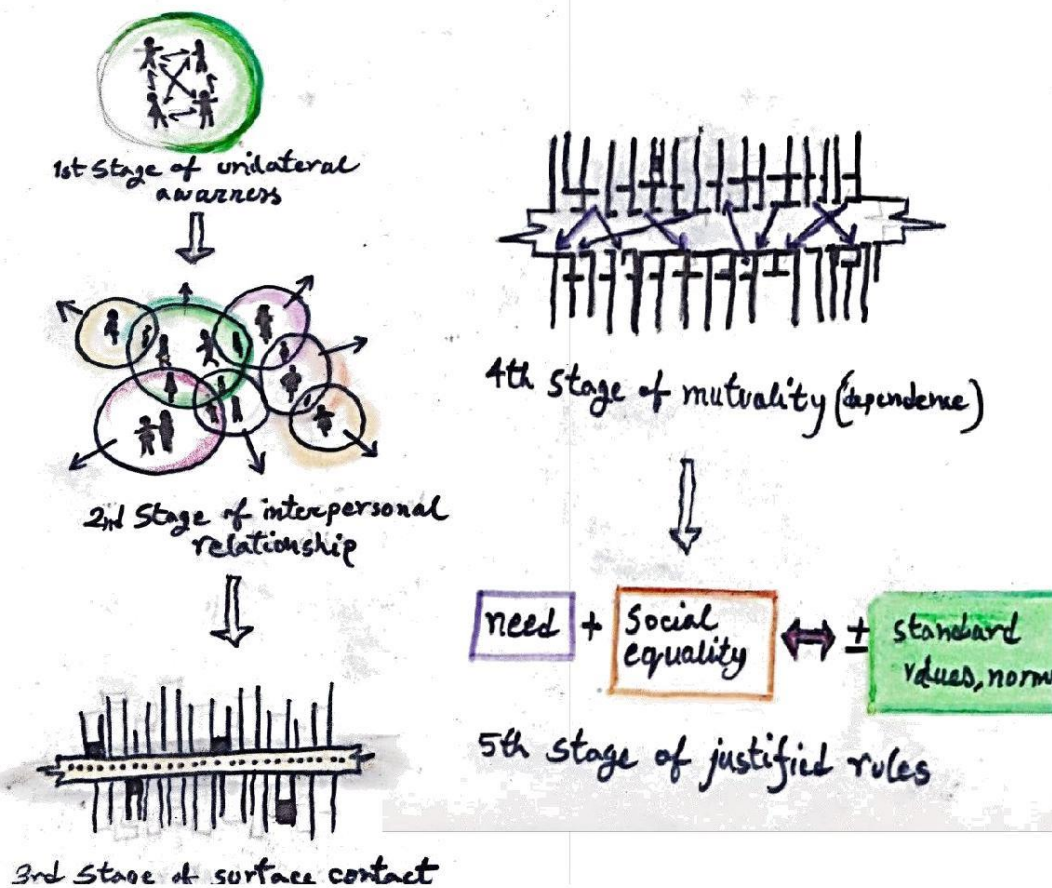 1st Stage of unilateral
awarness
2nd Stage of interpersonal
relationship
3rd Stage of surface contact
4th Stage of mutuality (dependence)
need + Social
equality
± standard
values, norm
5th Stage of justified rules